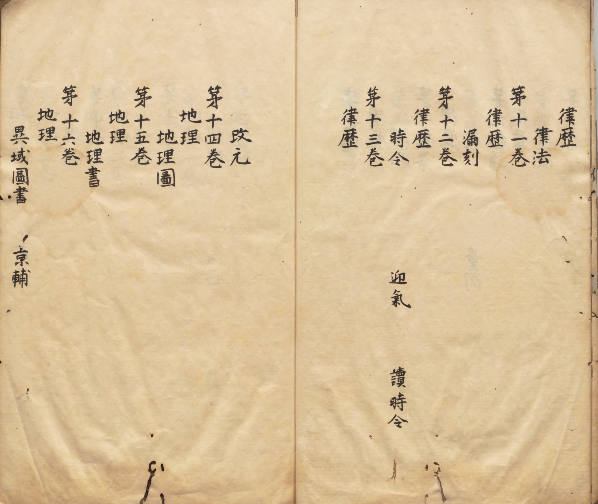 律歷
律法
第十一巻
律歷
漏刻
第十二巻
律歷
時令 迎氣 讀時令
第十三巻
律歷
改元
第十四巻
地理
地理圖
第十五巻
地理
地理書
第十六巻
地理
異域圖書 京輔